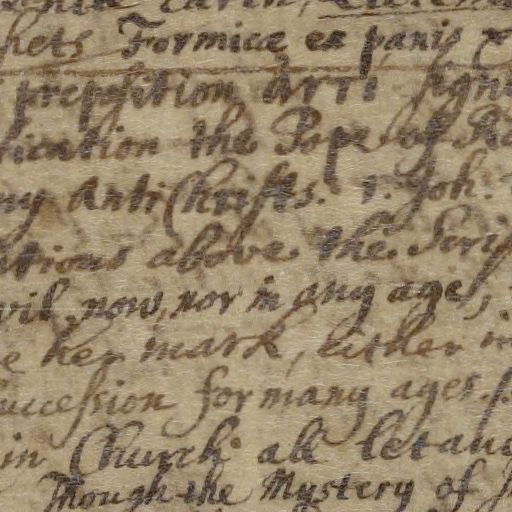 hets Formicæ ex panis
preposition Αντι signi
rication the Pope of Ro
ny AntiChrists. 1. Joh:
ations above the Scrip
vil now, nor in any age,
e her mark, either in
succession for many ages.
in Church: all
Though the Mystery of